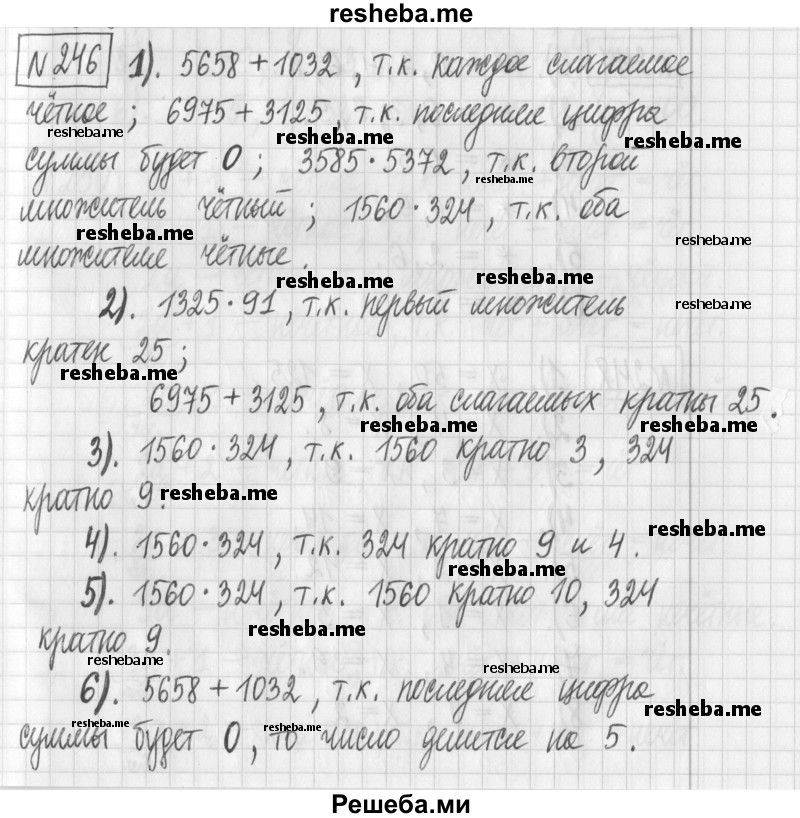 resheba.me
№246 1). 5658 + 1032, т.к. каждое слагаемое
чётное; 6975 + 3125, т.к. последняя цифра
resheba.me resheba.me resheba.me
суммы будет 0; 3585 · 5372, т.к. второй
resheba.me
множитель чётный; 1560 · 324, т.к. оба
resheba.me resheba.me
множителя чётные.
resheba.me resheba.me
2). 1325 · 91, т.к. первый множитель
resheba.me
кратен 25;
resheba.me
6975 + 3125, т.к. оба слагаемых кратны 25.
resheba.me resheba.me
3). 1560 · 324, т.к. 1560 кратно 3, 324
кратно 9.
resheba.me
4). 1560 · 324, т.к. 324 кратно 9 и 4.
resheba.me
resheba.me
5). 1560 · 324, т.к. 1560 кратно 10, 324
кратно 9.
resheba.me
resheba.me resheba.me
6). 5658 + 1032, т.к. последняя цифра
resheba.me
суммы будет 0, то число делится на 5.
resheba.me resheba.me
Решеба.ми